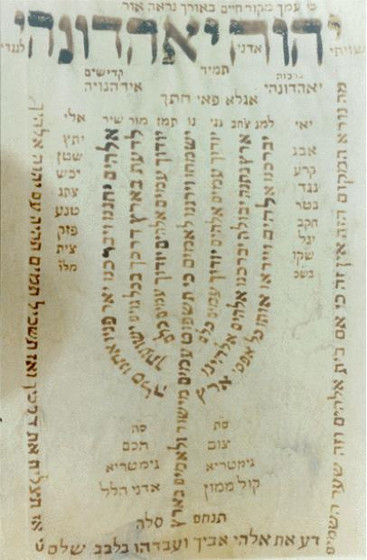 כי עמך מקור חיים באורך נראה אור
יהוה יאהדונהי
שויתי אדני לנגדי
תמיד
ברכות קדישים
יאהדונהי אידהנויה
אגלא פאי חתך
אלי
אבג יתץ
קרע שטן
נגד יכש
בטר צתג
חקב טנע
יגל פזק
שקו צית
מה נורא המקום הזה אין זה כי אם בית אלהים וזה שער השמים
לדעת בארץ דרכך בכל גוים ישועתך
יודוך עמים אלהים יודוך עמים כלם
ישמחו וירננו לאמים כי תשפט עמים מישור ולאמים בארץ תנחם סלה
יודוך עמים אלהים יודוך עמים כלם
ארץ נתנה יבולה יברכנו אלהים אלהינו
יברכנו אלהים וייראו אותו כל אפסי ארץ
סת סה
צום חכם
גימטריא גימטריא
קול ממון אדני הלל
כי אז תצליח את דרכך ואז תשכיל תמים תהיה עם יהוה אלהיך
דע את אלהי אביך ועבדהו בלבב שלם